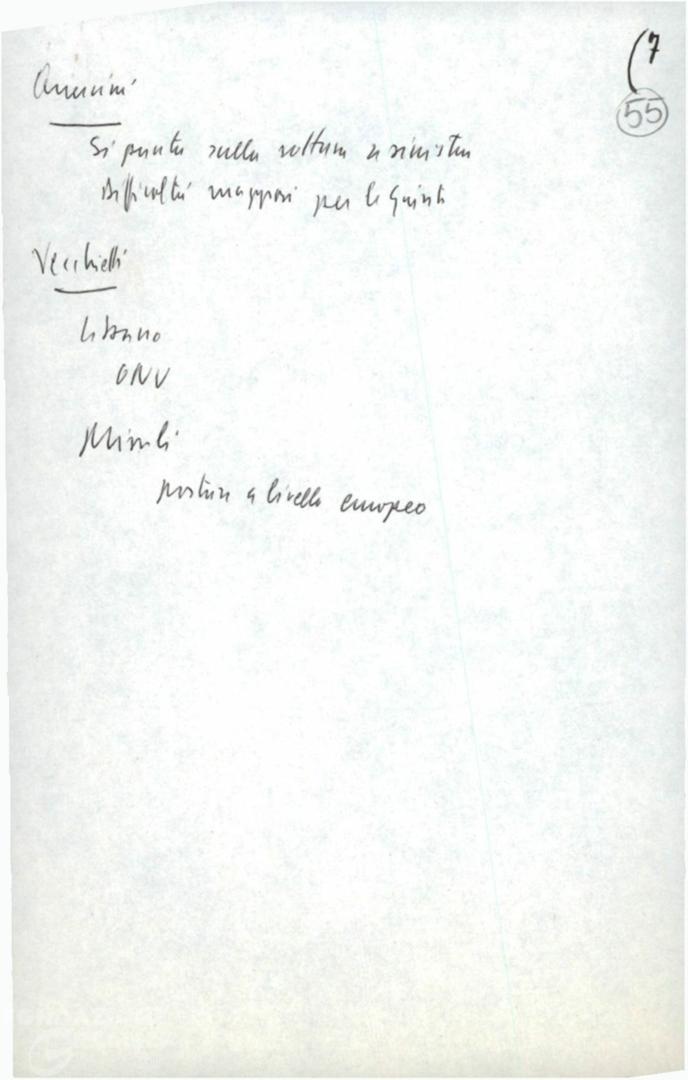 (7
55
Si punta sulla rottura a sinistra
Difficoltà maggiori per le Giunte
Vecchietti
Libano
ONU
Missili
a livello europeo